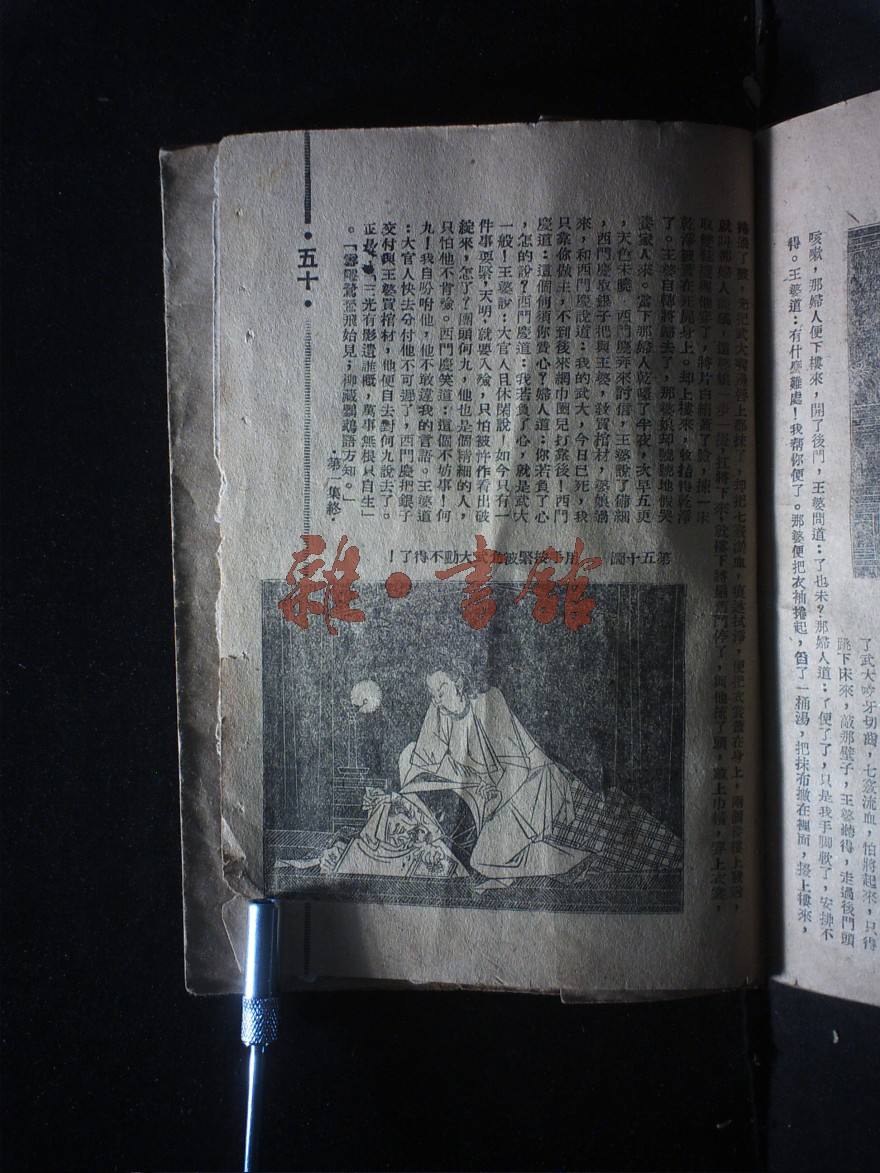 了武大咬牙切齒，七竅流血，怕將起來，只得
跳下床來，敲那壁子，王婆聽得，走過後門頭
咳嗽，那婦人便下樓來，開了後門，王婆問道：了也未？那婦人道：了便了了，只是我手脚軟了，安排不
得。王婆道：有什麽難處！我幫你便了。那婆便把衣袖捲起，舀了一桶湯，把抹布撇在裡面，掇上樓來，
捲過了被，先把武大嘴邊唇上都抹了，却把七竅淤血，痕迹拭淨，便把衣裳蓋在身上，兩個從樓上
就叫那婦人
乾淨被蓋在死屍身上。却上樓來，收拾得乾淨
了。王婆自轉將歸去了，那婆娘却號號地假哭
養家人來。當下那婦人乾嚎了半夜，次早五更
，天色未曉，西門慶奔來討信，王婆說了備細
，西門慶取銀子把與王婆，敎買棺材，婆娘過
來，和西門慶說道：我的武大，今日已死，我
只靠你做主，不到後來網巾圈兒打靠後！西門
慶道：這個何須你費心？婦人道：你若負了心
，怎的說？西門慶道：我若負了心，就是武大
一般！王婆說：大官人且休閑說！如今只有一
件事要緊，天明，就要入殮，只怕被忤作看出破
綻來，怎了？團頭何九，他也是個精細的人，
只怕他不肯殮。西門慶笑道：這個不妨事！何
九！我自吩咐他，他不敢違我的言語。王婆道
：大官人快去分付他不可遲了，西門慶把銀子
交付與王婆買棺材，他便自去對何九說去了。
正是：「三光有影遺誰概，萬事無根只自生」
。「雪隱鷺鷥飛始見；柳藏鸚鵡語方知。」
·第一集終·
第五十圖 用手按緊被角武大動不得了！
·五十·
雜·書舘